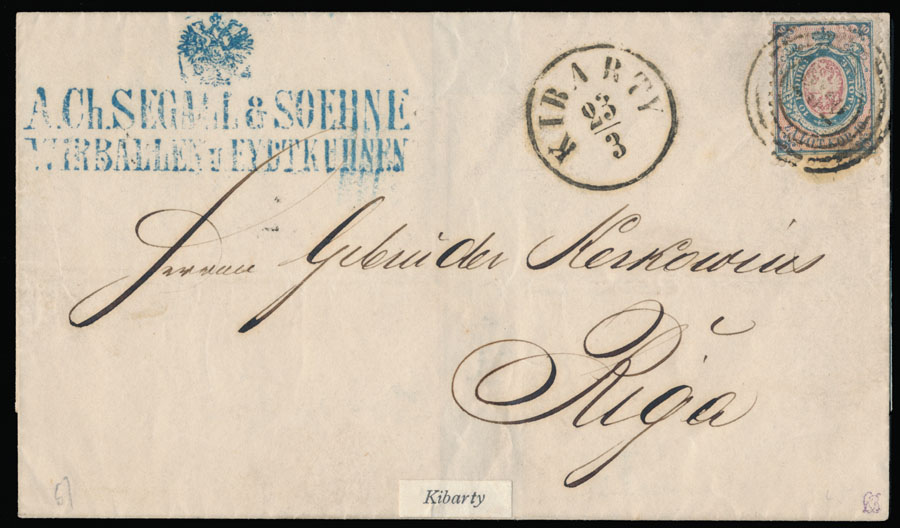 A.Ch.SEGALL & SOEHNE
WIRBALLEN u EYDTKUHNEN
KIBARTY
23
3
Herren Gebrüder Kerkovius
Riga
Kibarty